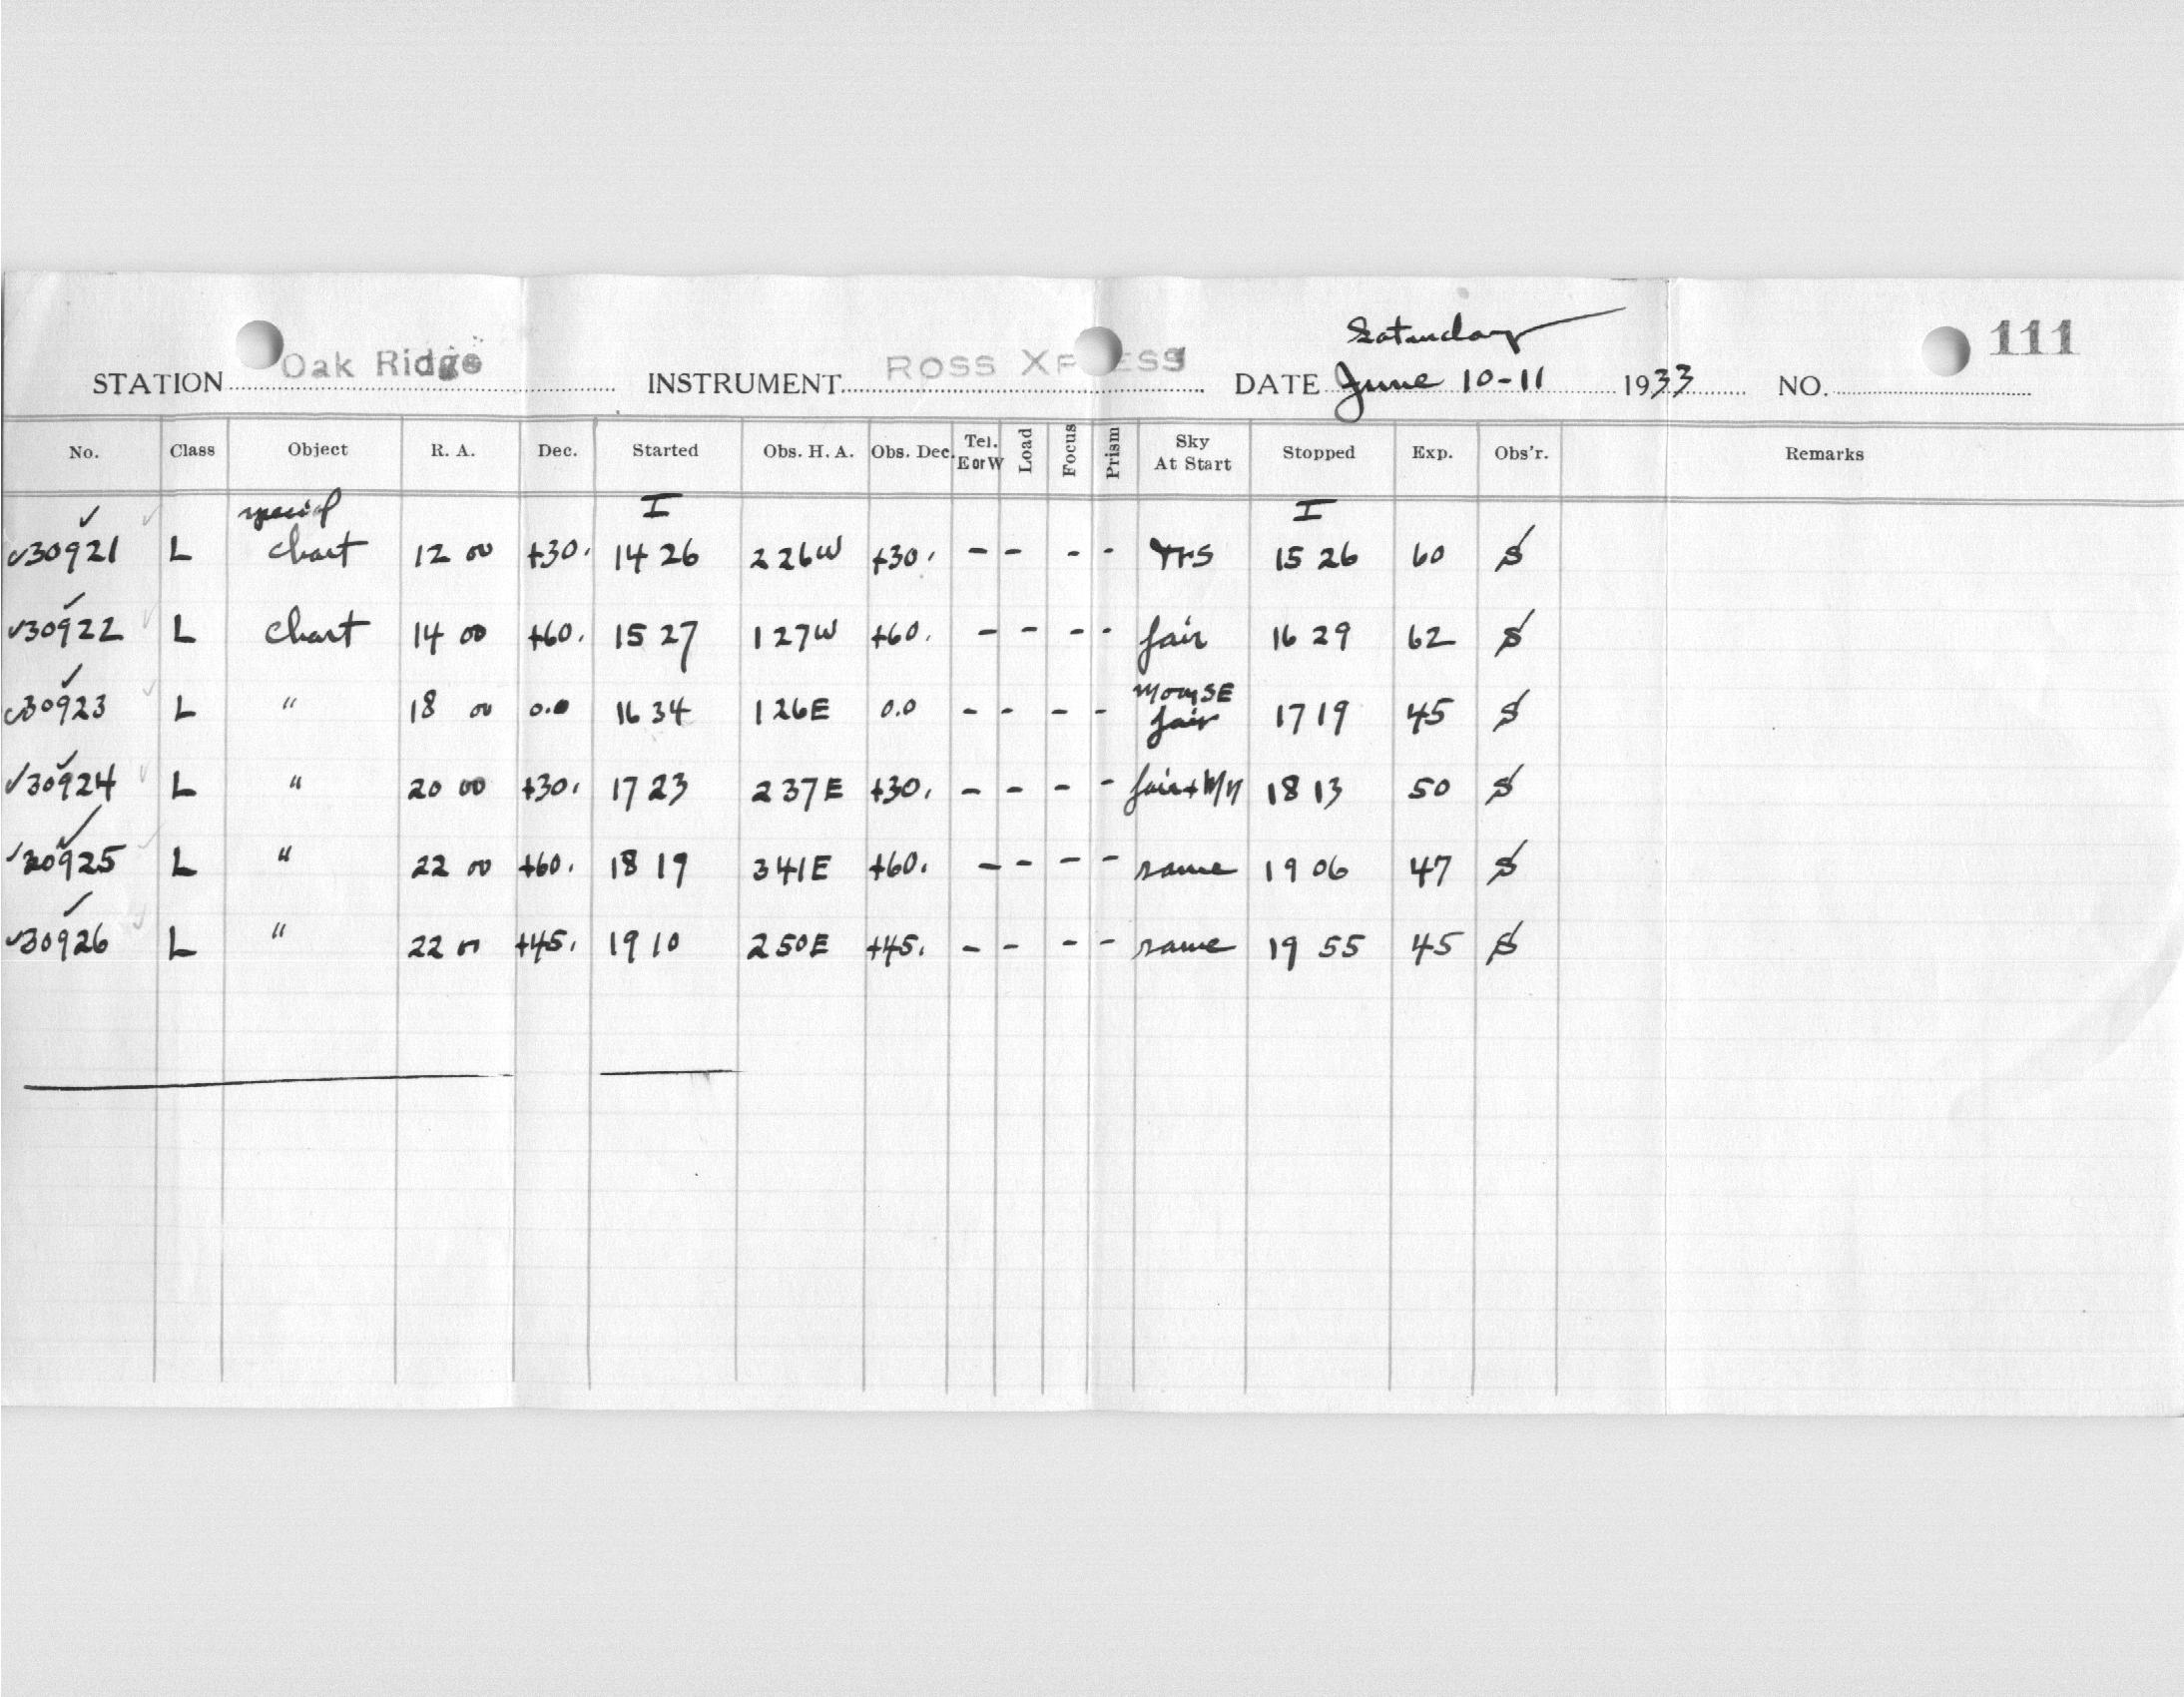 Saturday
STATION Oak Ridge INSTRUMENT ROSS XP ESS DATE June 10-11 1933 NO. 111
No. Class Object R. A. Dec. Started Obs. H. A. Obs. Dec. Tel. E or W Load Focus Prism Sky At Start Stopped Exp. Obs'r. Remarks
special I I
30921 L chart 12 00 +30. 14 26 2 26W +30. - - - - 15 26 60 S
30922 L chart 14 00 +60. 15 27 1 27W +60. - - - - fair 16 29 62 S
30923 L " 18 00 0.0 16 34 1 26E 0.0 - - - - fair 17 19 45 S
30924 L " 20 00 +30. 17 23 2 37E +30. - - - - fair + 18 13 50 S
30925 L " 22 00 +60. 18 19 3 41E +60. - - - - same 19 06 47 S
30926 L " 22 00 +45. 19 10 2 50E +45. - - - - same 19 55 45 S